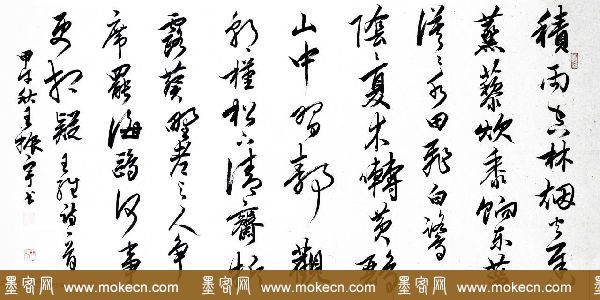 積雨空林烟火遲
蒸藜炊黍餉東菑
漠〻水田飛白鷺
陰〻夏木囀黃鸝
山中習靜觀
朝槿松下清齋折
露葵野老與人爭
席罷海鷗何事
更相疑 王維詩一首
甲午秋王振宇書
墨客网 www.mokecn.com 墨客网 www.mokecn.com 墨客网 www.mokecn.com 墨客网 www.mokecn.com